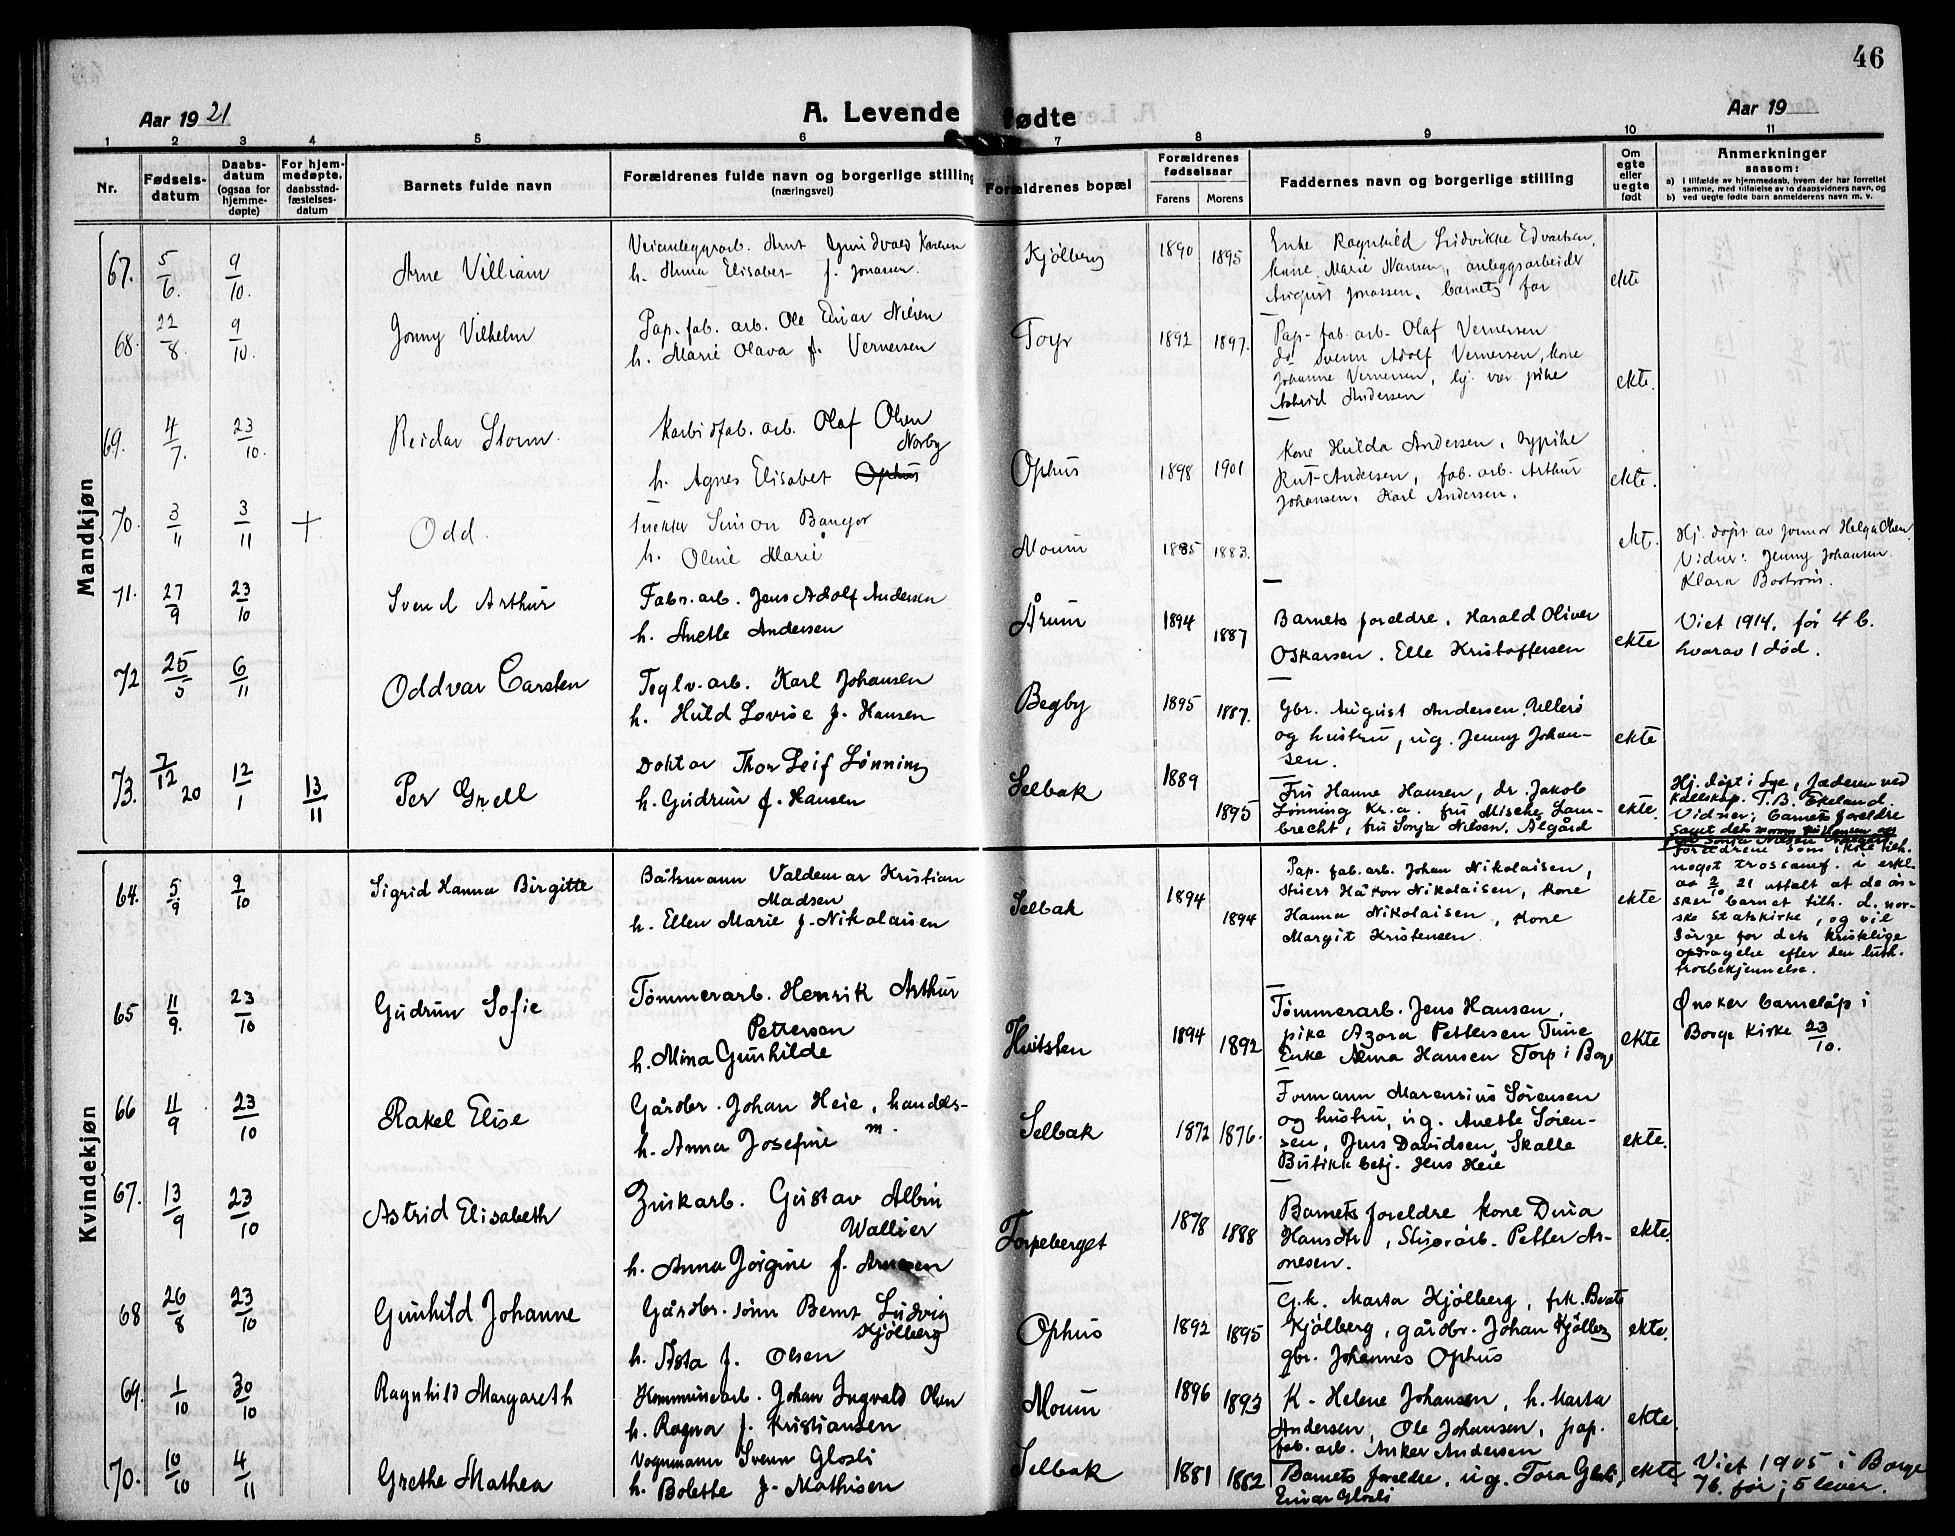 46
Aar 1921
A. Levende fødte
Aar 19
1 2 3 4 5 6 7 8 9 10 11
Nr.
Fødsels-
datum
Daabs-
datum
(ogsaa for
hjemme-
døpte)
For hjem-
medøpte,
daabsstad-
fæstelses-
datum
Barnets fulde navn
Forældrenes fulde navn og borgerlige stilling
(næringsvei)
Forældrenes bopæl
Forældrenes
fødselsaar
Farens Morens
Faddernes navn og borgerlige stilling
Om
egte
eller
uegte
født
Anmerkninger
saasom:
a) i tilfælde av hjemmedaab, hvem der har forrettet
samme, med tilføielse av to daabsvidners navn, og
b) ved uegte fødte barn anmelderens navn m. v.
Mandkjøn
67. 5/6. 9/10. Arne Villiam
Veianleggsarb. Arnt Karlsen
h. Anna Elisabet f. Jonassen
Kjølberg 1890 1895
Enke Ragnhild Ludvikke Edvartsen,
kone Marie Nansen, anleggsarbeider
August Jonassen, barnets far
ekte
68. 22/8. 9/10. Jonny Vilhelm
Pap. fab. arb. Ole Einar Nilsen
h. Marie Olava f. Vernersen
Torp 1892 1897.
Pap. fab. arb. Olaf Vernersen
do Svenn Adolf Vernersen, kone
Johanne Vernersen, hj. vær. pike
Astrid Andersen
ekte.
69. 4/7. 23/10. Reidar Storm
Karbidfab. arb. Olaf Olsen
Norby
h. Agnes Elisabet Ophus
Ophus 1898 1901
Kone Hulda Andersen, sypike
Rut Andersen, fab. arb. Arthur
Johansen. Karl Andersen.
ekte.
70. 3/11 3/11 + Odd.
Snekker Simon Bangor
h. Olme Marie
Moum 1885 1883.
ekt.
Hj. døpt av jormor Helga Olsen
Vidner: Jenny Johansen
Klara Bostrøm.
71. 27/9 23/10 Svend Arthur
Fabr. arb. Jens Adolf Andersen
h. Anette Andersen
Årum 1894 1887
Barnets foreldre, Harald Oliver
Oskarsen. Elle Kristoffersen
ekte
Viet 1914, før 4 b.
hvorav 1 død.
72 25/5 6/11 Oddvar Carsten
Teglv. arb. Karl Johansen
h. Huld Lovise f. Hansen
Begby 1895 1887.
Gbr. August Andersen, Ullerø
og hustru, ug. Jenny Johan-
sen.
ekte
73. 7/12 20 12/1 13/11 Per Grell
Doktor Thor Leif Lønning
h. Gudrun f. Hansen
Selbak 1889 1895
Fru Hanne Hansen, dr. Jakob
Lønning Kr.a. fru Mische Lam-
brecht, fru Sonja Nilsen, Ålgård
ekte.
Hj. døpt i Lye, Jæderen ved
Kallskap. T. B. Ekeland.
Vidner: barnets foreldre
Kvindekjøn
64. 5/9 9/10 Sigrid Hanna Birgitte
Båtsmann Valdemar Kristian
Madsen
h. Ellen Marie f. Nikolaisen
Selbak 1894 1894
Pap. fab. arb. Johan Nikolaisen,
Stuert Håkon Nikolaisen, kone
Hanna Nikolaisen, kone
Margit Kristensen
ekte
Foreldrene som ikke tilh.
noget trossamf. i erkl.
av 2/10 21 uttalt at de øn-
sker barnet tilh. d. nor-
ske statskirke, og vil
sørge for dets kristelige
opdragelse efter den luth.
trosbekjennelse.
65 11/9. 23/10 Gudrun Sofie
Tømmerarb. Henrik Arthur
Pettersen
h. Mina Gunhilde
Hvitsten 1894 1892
Tømmerarb. Jens Hansen,
pike Azora Pettersen Tune
Enke Anna Hansen Torp i Borge
ekte
Ønsker barnedåp i
Borge Kirke 23/10.
66 11/9 23/10 Rakel Elise
Gårdbr. Johan Heie, handels-
m.
h. Anna Josefine
Selbak 1872 1876.
Formann Marensius Sørensen
og hustru, ug. Anette Søren-
sen, Jens Davidsen, Skalle
Butikkbetj. Hans Heie
ekte.
67. 13/9 23/10 Astrid Elisabeth
Zinkarb. Gustav Albin
Wallier
h. Anna Jørgine f. Arnesen
Torpeberget 1878 1888
Barnets foreldre kone Dina
Hansdtr, arb. Petter Ar-
nesen.
ekte.
68 26/8 23/10 Gunhild Johanne
Gårdbr. sønn Bernt Ludvig
Kjølberg
h. Asta f. Olsen
Ophus 1892 1895
G.k. Marta Kjølberg, frk. Beate
Kjølberg, gårdbr. Johan Kjølberg
gbr. Johannes Ophus
ekte.
69. 1/10 30/10 Ragnhild Margareth
Kommunearb. Johan Ingvald Olsen
h. Ragna f. Kristiansen
Moum 1896 1893
K. Helene Johansen, h. Marta
Andersen, Ole Johansen, pap.
fab. arb. Anker Andersen
ekte
70. 10/10 4/11 Grethe Mathea
Vognmann Svenn Glosli
h. Bolette f. Mathisen
Selbak 1881 1882
Barnets foreldre, ug. Tora Glosli,
Einar Glosli
ekte
Viet 1905 i Borge
7b. før; 5 lever.